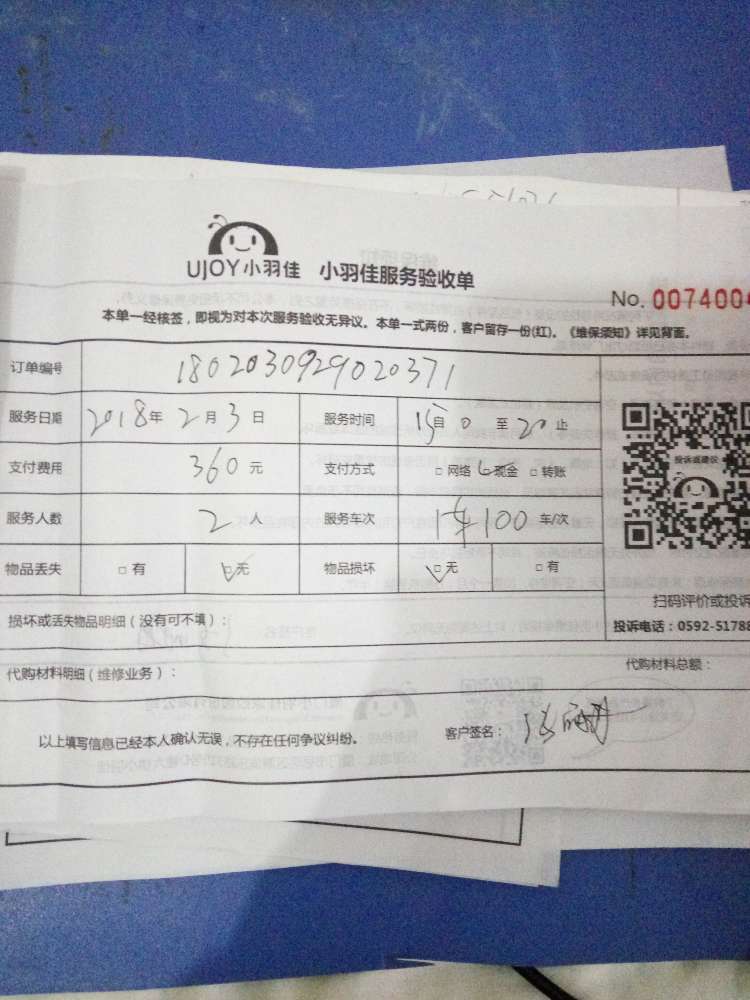 UJOY小羽佳 小羽佳服务验收单
No. 007400
本单一经核签，即视为对本次服务验收无异议。本单一式两份，客户留存一份(红)。《维保须知》详见背面。
订单编号 1802030929020371
服务日期 2018年 2月 3日 服务时间 15自0 至20止
支付费用 360元 支付方式 □网络 ☑现金 □转账
服务人数 2人 服务车次 100 车/次
物品丢失 □有 ☑无 物品损坏 ☑无 □有
投诉或建议
扫码评价或投诉
投诉电话：0592-51788
损坏或丢失物品明细（没有可不填）：
代购材料明细（维修业务）： 代购材料总额：
以上填写信息已经本人确认无误，不存在任何争议纠纷。 客户签名：